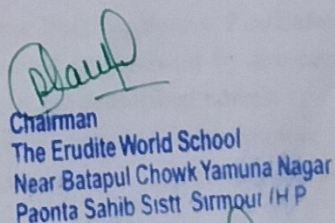 Chairman
The Erudite World School
Near Batapul Chowk Yamuna Nagar
Paonta Sahib Sistt Sirmour (H P